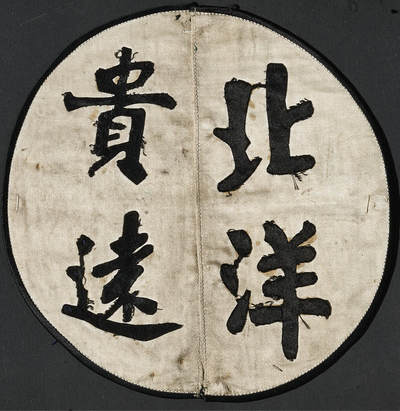 北洋
貴遠